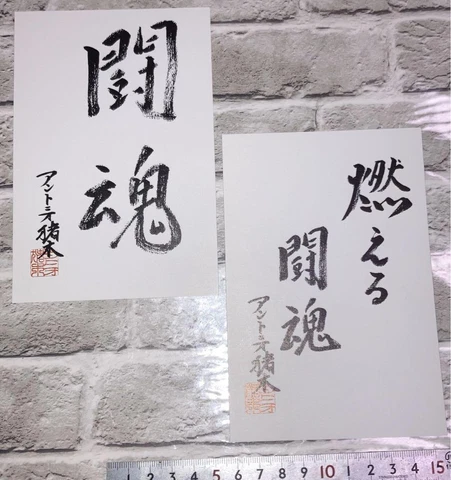 闘魂
アントニオ猪木
燃える
闘魂
アントニオ猪木
1 2 3 4 5 6 7 8 9 10 1 2 3 4 15